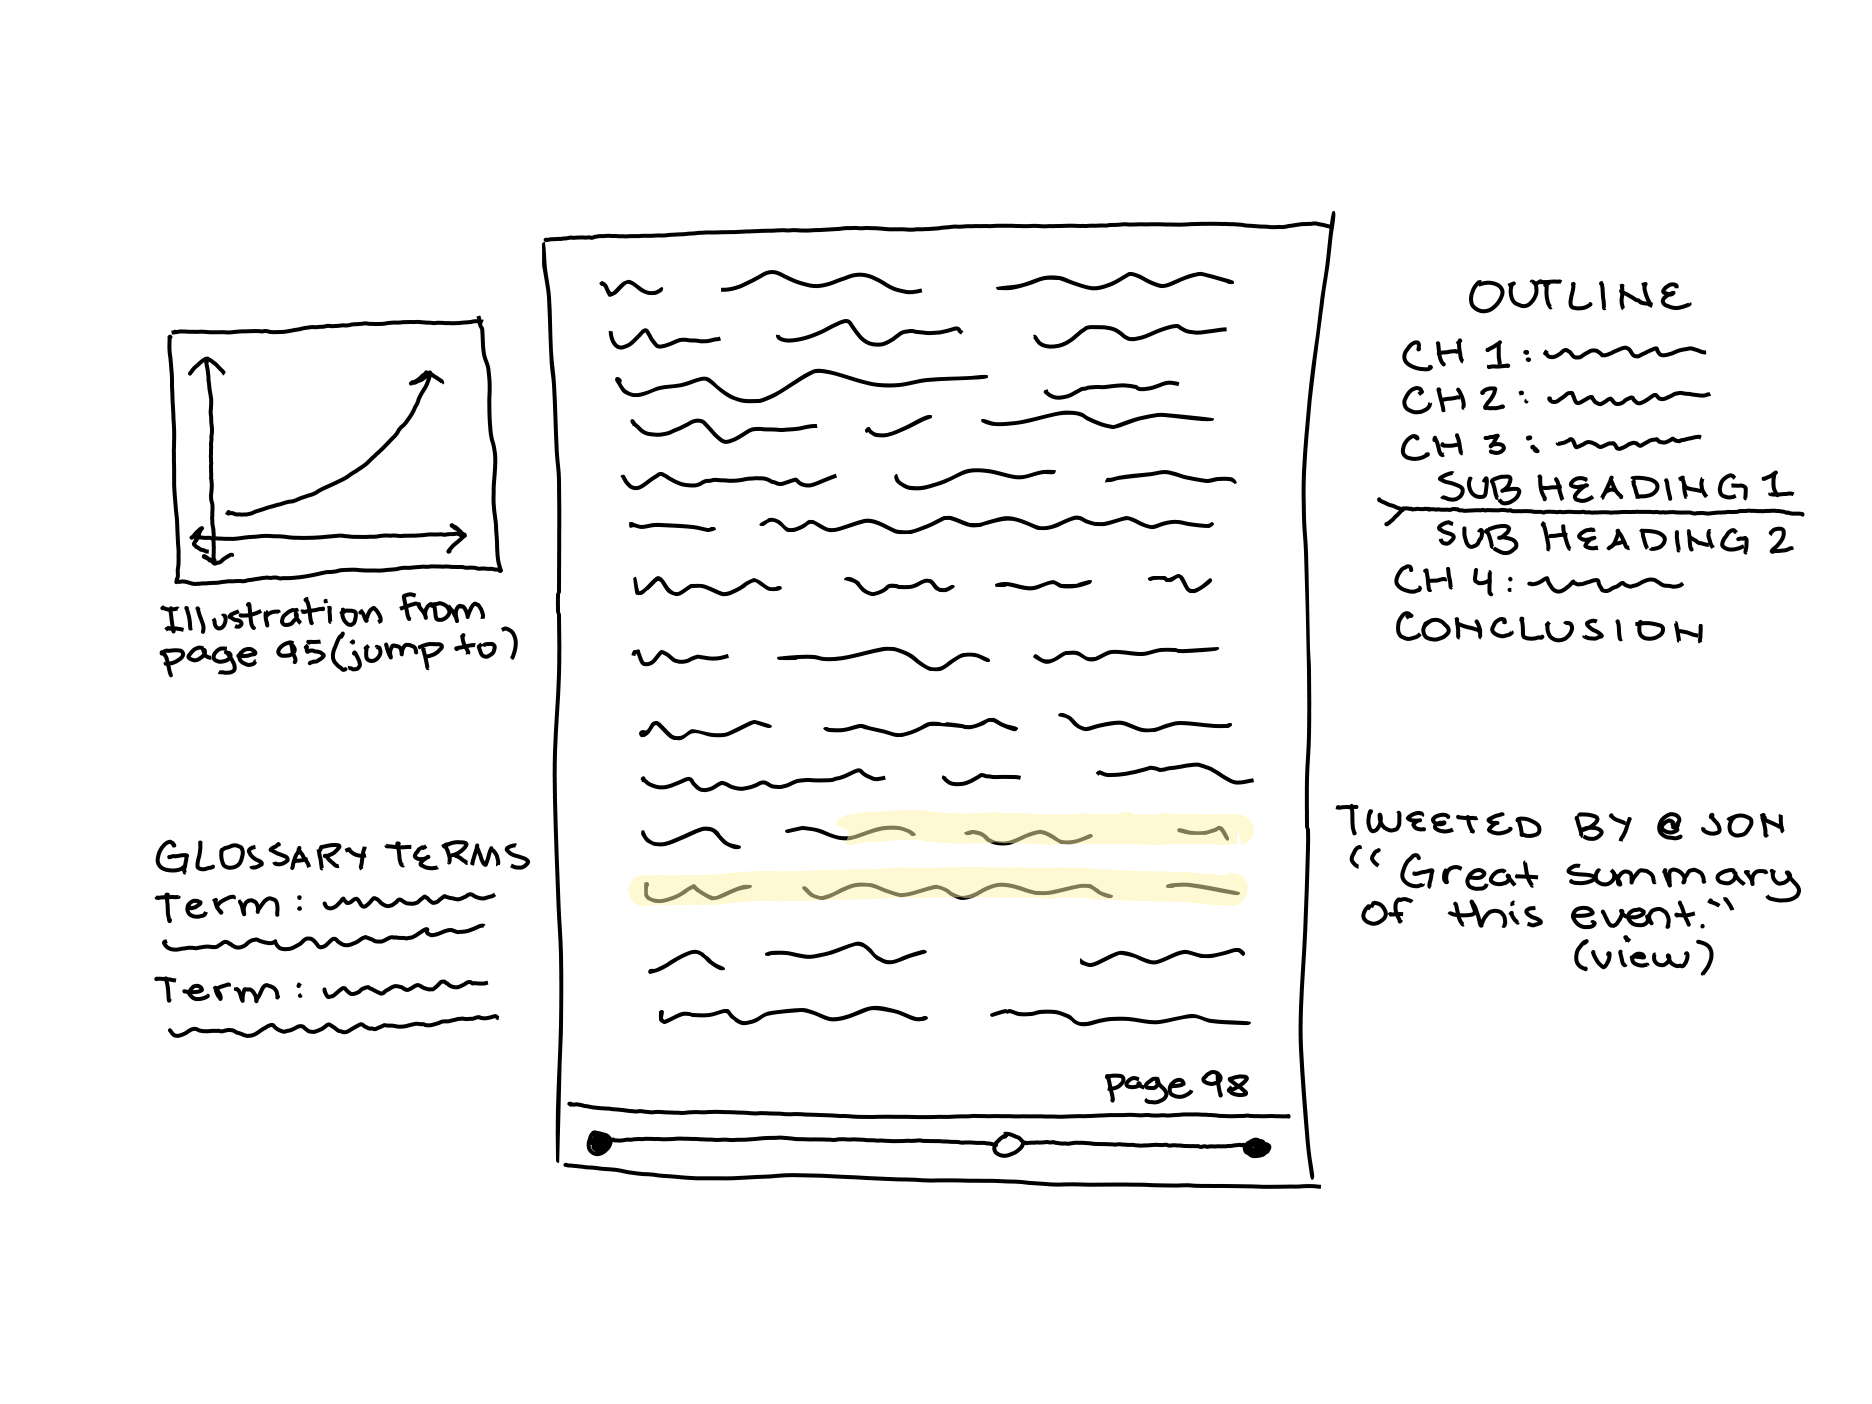 Illustration from
page 95 (jump to)
GLOSSARY TERMS
Term:
Term:
page 98
OUTLINE
CH 1:
CH 2:
CH 3:
SUB HEADING 1
SUB HEADING 2
CH 4:
CONCLUSION
TWEETED BY @JON
"Great summary
of this event."
(view)